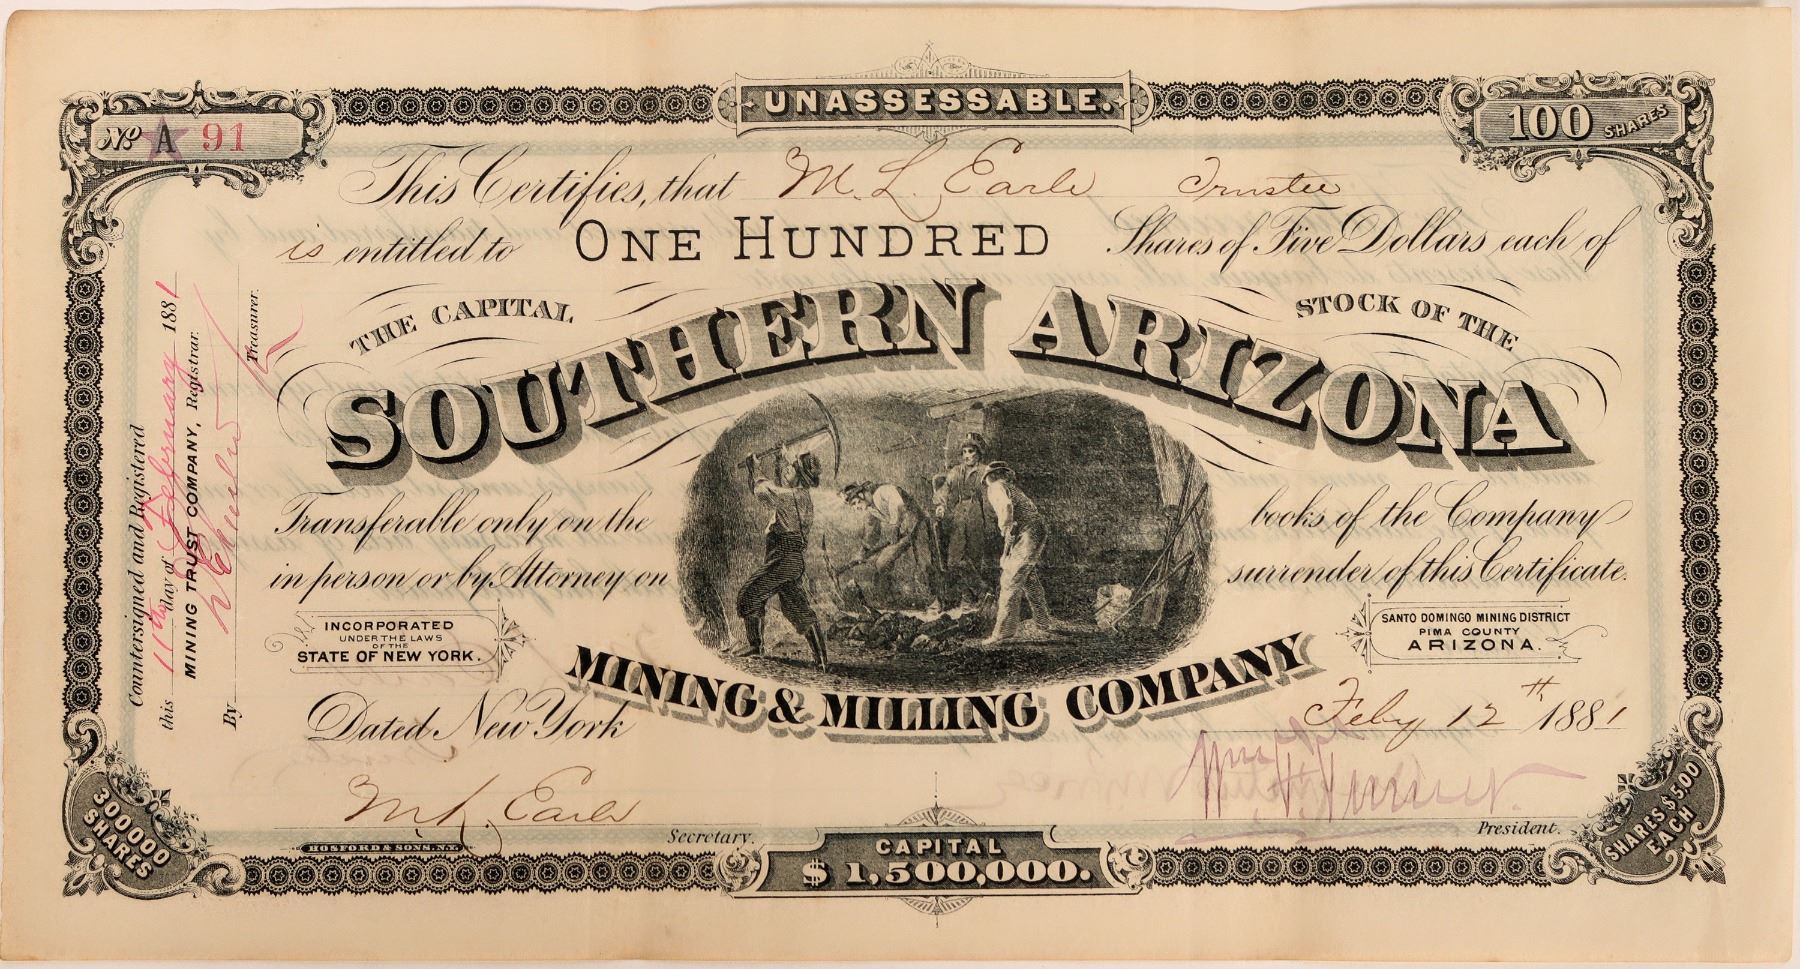 UNASSESSABLE.
No. A 91
100 SHARES
This Certifies, that M. L. Earle Trustee
is entitled to ONE HUNDRED Shares of Five Dollars each of
THE CAPITAL STOCK OF THE
SOUTHERN ARIZONA
MINING & MILLING COMPANY
Transferable only on the books of the Company
in person or by Attorney on surrender of this Certificate.
INCORPORATED
UNDER THE LAWS
OF THE
STATE OF NEW YORK.
SANTO DOMINGO MINING DISTRICT
PIMA COUNTY
ARIZONA.
Dated New York Feby 12th 1881
M. L. Earle
Secretary.
President.
HOSFORD & SONS. N.Y.
CAPITAL
$1,500,000.
300000
SHARES
SHARES $5.00
EACH
Countersigned and Registered
this 11th day of February 1881
MINING TRUST COMPANY, Registrar.
By Treasurer.